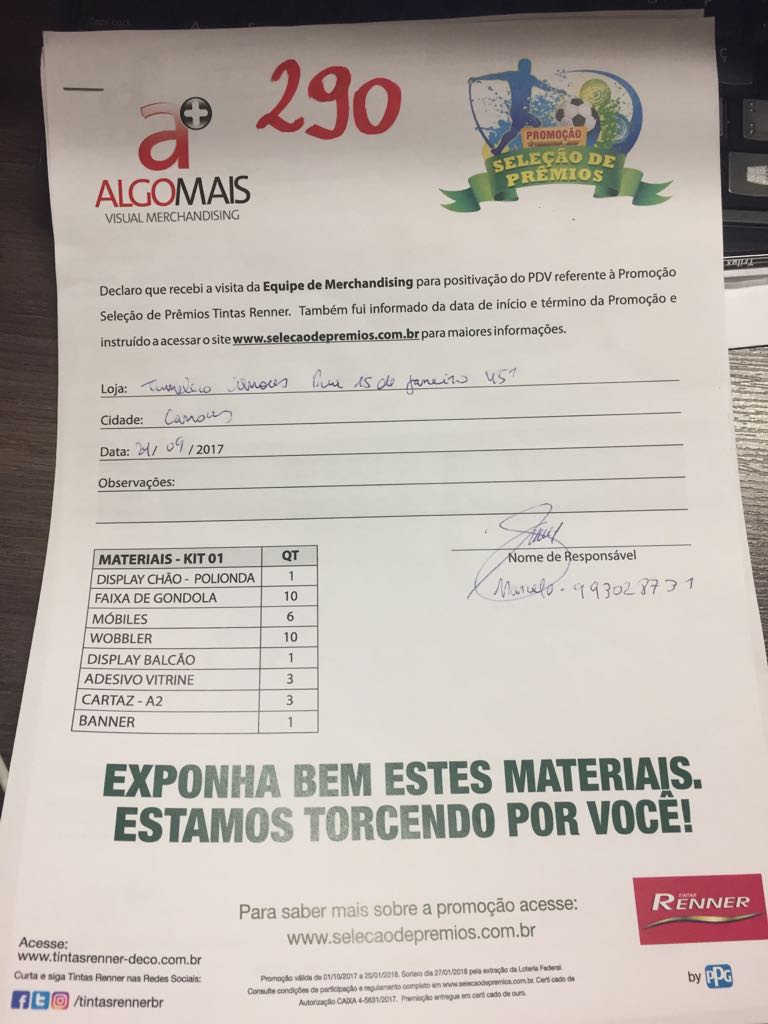 290
a+
ALGOMAIS
VISUAL MERCHANDISING
PROMOÇÃO
SELEÇÃO DE
PRÊMIOS
Declaro que recebi a visita da Equipe de Merchandising para positivação do PDV referente à Promoção
Seleção de Prêmios Tintas Renner. Também fui informado da data de início e término da Promoção e
instruído a acessar o site www.selecaodepremios.com.br para maiores informações.
Loja: Rua 15 de Janeiro 451
Cidade: Canoas
Data: /09/2017
Observações:
Nome de Responsável
Marcelo - 993028731
MATERIAIS - KIT 01 QT
DISPLAY CHÃO - POLIONDA 1
FAIXA DE GONDOLA 10
MÓBILES 6
WOBBLER 10
DISPLAY BALCÃO 1
ADESIVO VITRINE 3
CARTAZ - A2 3
BANNER 1
EXPONHA BEM ESTES MATERIAIS.
ESTAMOS TORCENDO POR VOCÊ!
Para saber mais sobre a promoção acesse:
www.selecaodepremios.com.br
TINTAS
RENNER
by PPG
Acesse:
www.tintasrenner-deco.com.br
Curta e siga Tintas Renner nas Redes Sociais:
/tintasrennerbr
Promoção válida de 01/10/2017 a 20/01/2018. Sorteio dia 27/01/2018 pela extração da Loteria Federal.
Consulte condições de participação e regulamento completo em www.selecaodepremios.com.br. Certi cado de
Autorização CAIXA 4-5631/2017. Premiação entregue em certi cado de ouro.